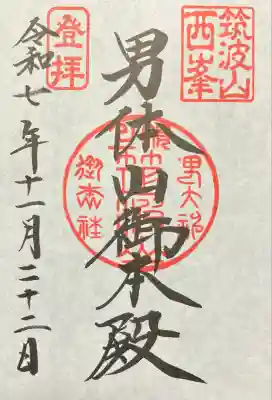 筑波山
西峯
男体山御本殿
登拝
令和七年十一月二十二日